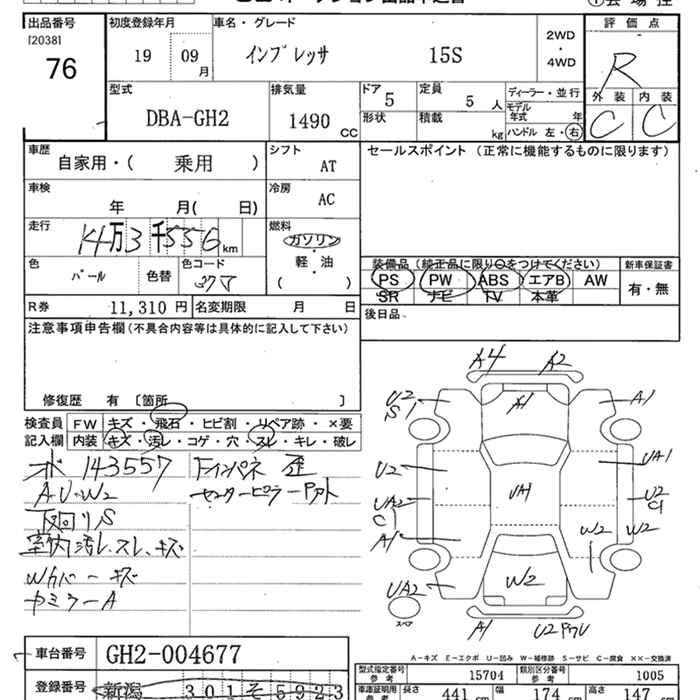 出品番号 初度登録年月 車名・グレード 2WD・4WD 評価点
[2038]
76 19 09月 インプレッサ 15S R
型式 排気量 ドア 定員 ディーラー・並行 外装 内装
DBA-GH2 1490CC 5 5人 モデル年式 年 C C
形状 積載 kg ハンドル 左・右
車歴 シフト セールスポイント (正常に機能するものに限ります)
自家用・( 乗用 ) AT
車検 冷房
年 月( 日) AC
走行 燃料
14万3千556km ガソリン・軽・油
色 色替 色コード 装備品 (純正品に限り○をつけてください) 新車保証書
パール ( ) PS PW ABS エアB AW 有・無
SR ナビ TV 本革
R券 11,310円 名変期限 月 日 後日品
注意事項申告欄(不具合内容等は具体的に記入して下さい)
修復歴 有 〔箇所 〕
検査員記入欄 FW キズ・飛石・ヒビ割・リペア跡・×要
内装 キズ・汚レ・コゲ・穴・スレ・キレ・破レ
メ 143557 Fインパネ 歪
AU・W2 センターピラー
下回りS
室内汚レ、スレ、キズ
Wカバーキズ
A4 A2
U2 S1 A1 A1
U2 UA1
UA2 C1 UA1 U2 C1
A1 W2 W2
UA2 W2
スペア A1 U2
A-キズ E-エクボ U-凹み W-補修跡 S-サビ C-腐食 XX-交換済
車台番号 GH2-004677
型式指定番号 参考 15704 類別区分番号 参考 1005
登録番号 新潟 301 そ 5923
車庫証明用 参考 長さ 441cm 幅 174cm 高さ 147cm